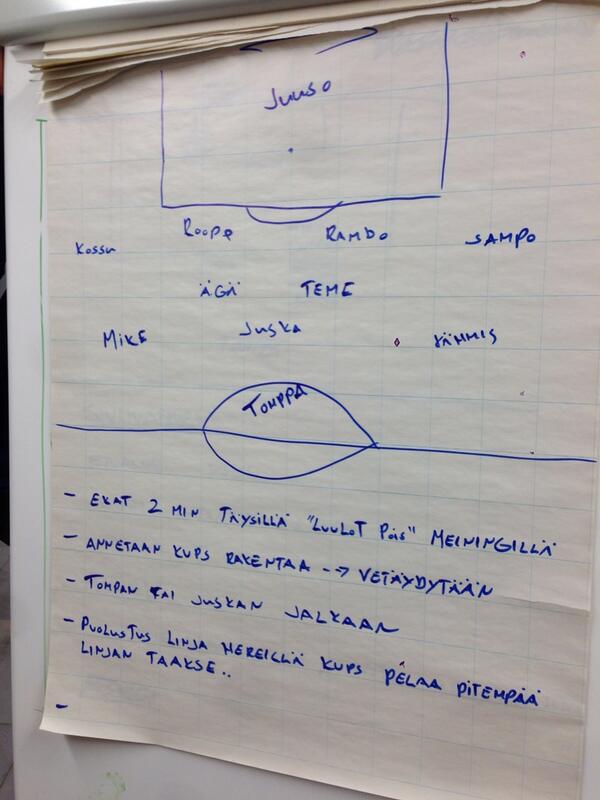 Juuso
Roope RAMBO SAMPO
Kossu
ÄGÄ TEME
MIKE Juska JÄMMIS
TOMPPA
- EKAT 2 MIN TÄYSILLÄ "LUULOT POIS" MEININGILLÄ
- ANNETAAN KUPS RAKENTAA --> VETÄYDYTÄÄN
- TOMPAN TAI JUSKAN JALKAAN
- PUOLUSTUS LINJA HEREILLÄ KUPS PELAA PITEMPÄÄ
LINJAN TAAKSE..
-